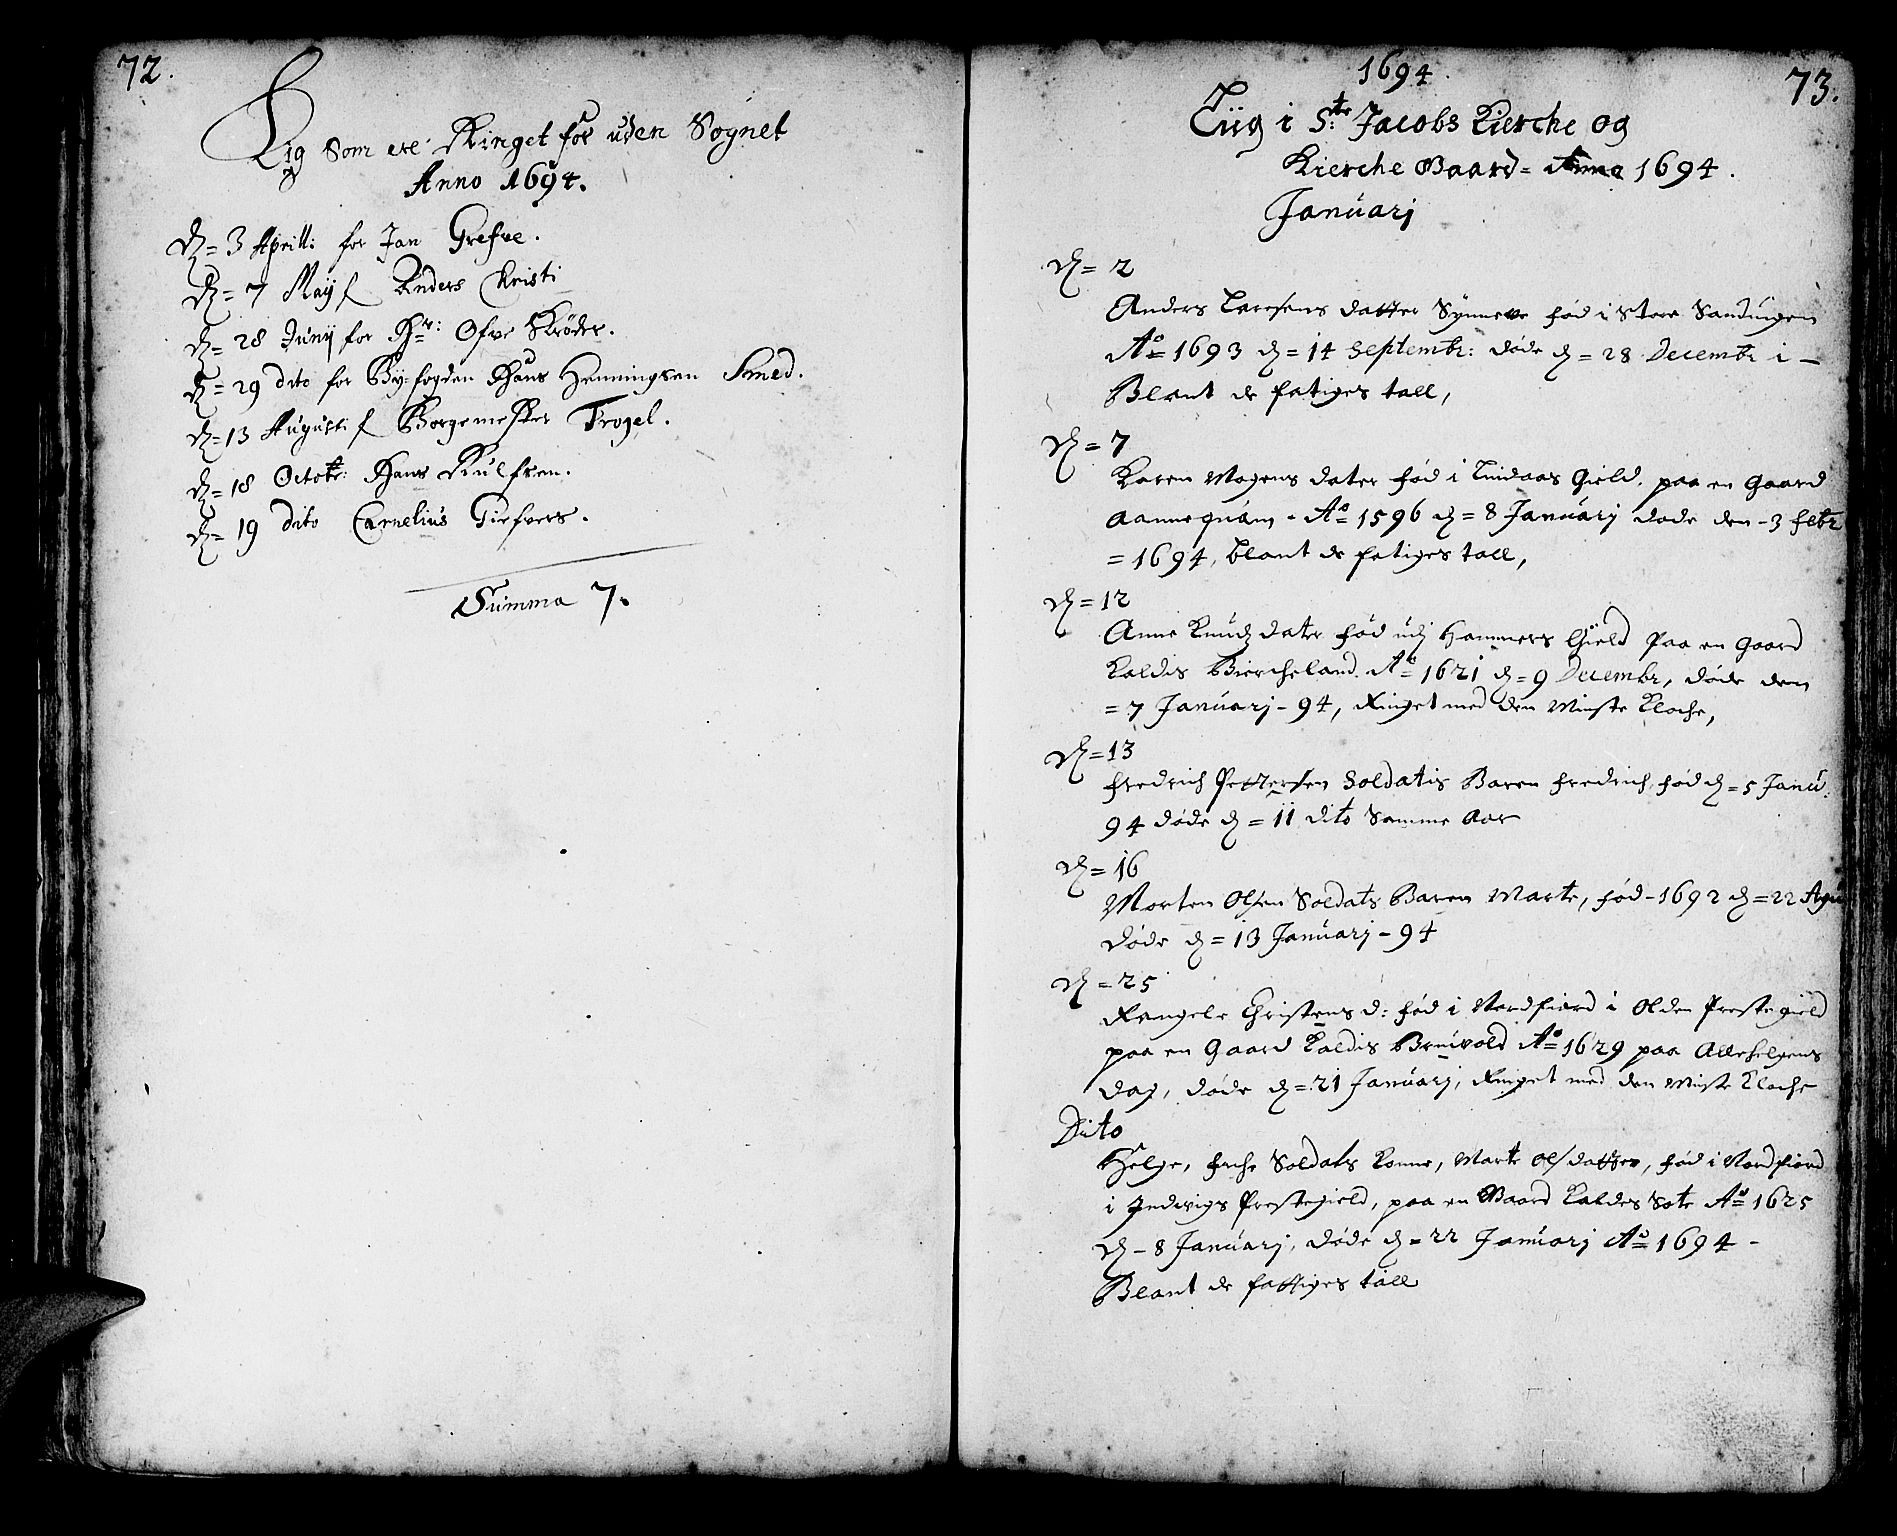 72.
Lig Som ere Ringet for uden Sognet
Anno 1694.
D= 3 Aprill: for Jan Grefve.
D= 7 Maij f Anders Christi
D= 28 Junij for Hr: Ofve Skrøder.
D= 29 dito for By-fogden Hans Henningsen Smed.
D= 13 Augusti f Borgemester Trogel.
D= 18 Octobr: Hans
D= 19 dito Carnelius
Summa 7.
1694.
73.
Liig i Ste: Jacobs Kierche og
Kierche Gaard = Anno 1694.
Januarj
D= 2
Anders Larsens datter Synneve fød i Store Sanduigen
Ao 1693 d= 14 Septembr: døde d= 28 Decembr i –
Blant de fatiges tall,
D= 7
Karen Mogens dater fød i Lindaas Gield, paa en Gaard
Aannequam - Ao 1596 d= 8 Januarj døde den - 3 febr
= 1694, blant de fatiges tall,
D= 12
Anne Knudz dater fød udj Hammers Gield paa en gaard
Kaldis Biercheland Ao 1621 d= 9 Decembr, døde den
= 7 Januarj - 94, Ringet med den Minste Kloche,
D= 13
Fredrich Pettersen Soldatis Baren Fredrich, fød d= 5 Janu:
94 døde d= 11 dito Samme Aar
D= 16
Morten Olsen Soldats Baren Marte, fød - 1692 d= 22 Agu
døde d= 13 Januarj - 94
D= 25
Rangele Christens d: fød i Nordfiord i Olden Prestegield
paa en Gaard Kaldis Bruvold Ao 1629 paa Allehelgens
dag, døde d= 21 Januarj, Ringet med den Minste Kloche
Dito
Helge, Soldats Konne, Marte Ols datter, fød i Nordfiord
i Indvigs Prestegield, paa en Gaard Kaldes Sote Ao 1625
D - 8 Januarj, døde d= 22 Januarj Ao 1694 -
Blant de fattiges tall